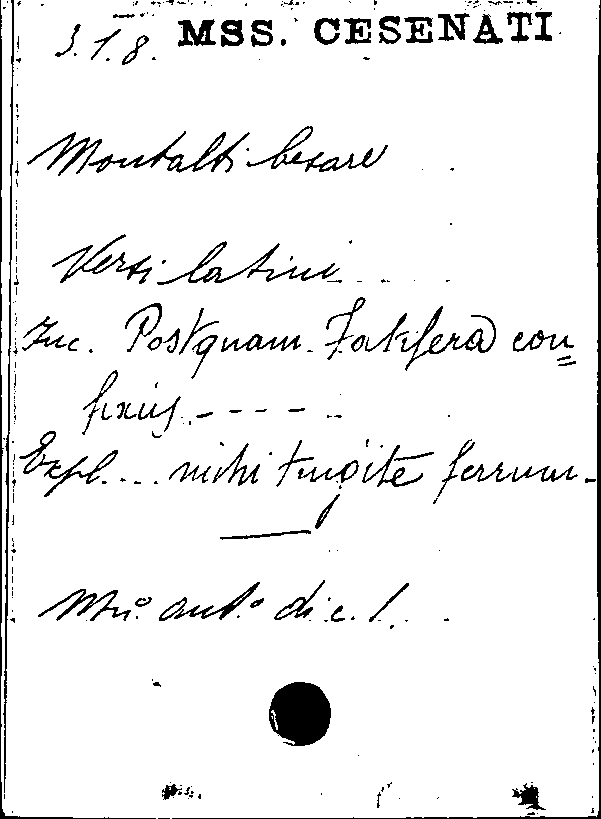 3.1.8. MSS. CESENATI
Montalti Cesare
Versi latini
Inc. Postquam Fatifera con=
fixus - - - -
Expl. ... mihi tingite ferrum -
Mss.º aut.º di c. 1.